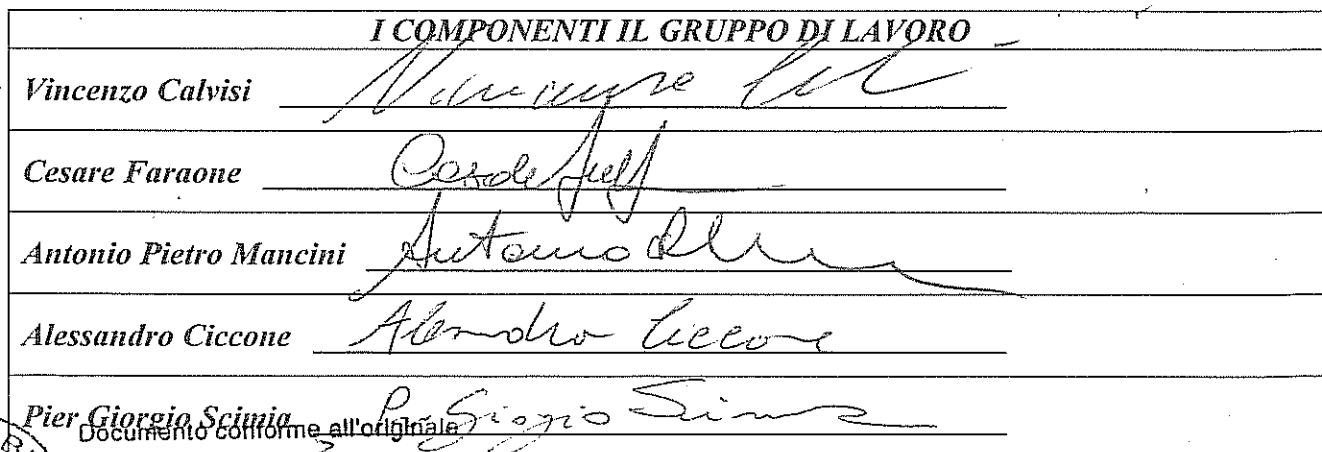 I COMPONENTI IL GRUPPO DI LAVORO
Vincenzo Calvisi Vincenzo
Cesare Faraone Cesare
Antonio Pietro Mancini Antonio
Alessandro Ciccone Alessandro Ciccone
Pier Giorgio Scimia Pier Giorgio Scimia
Documento conforme all'originale